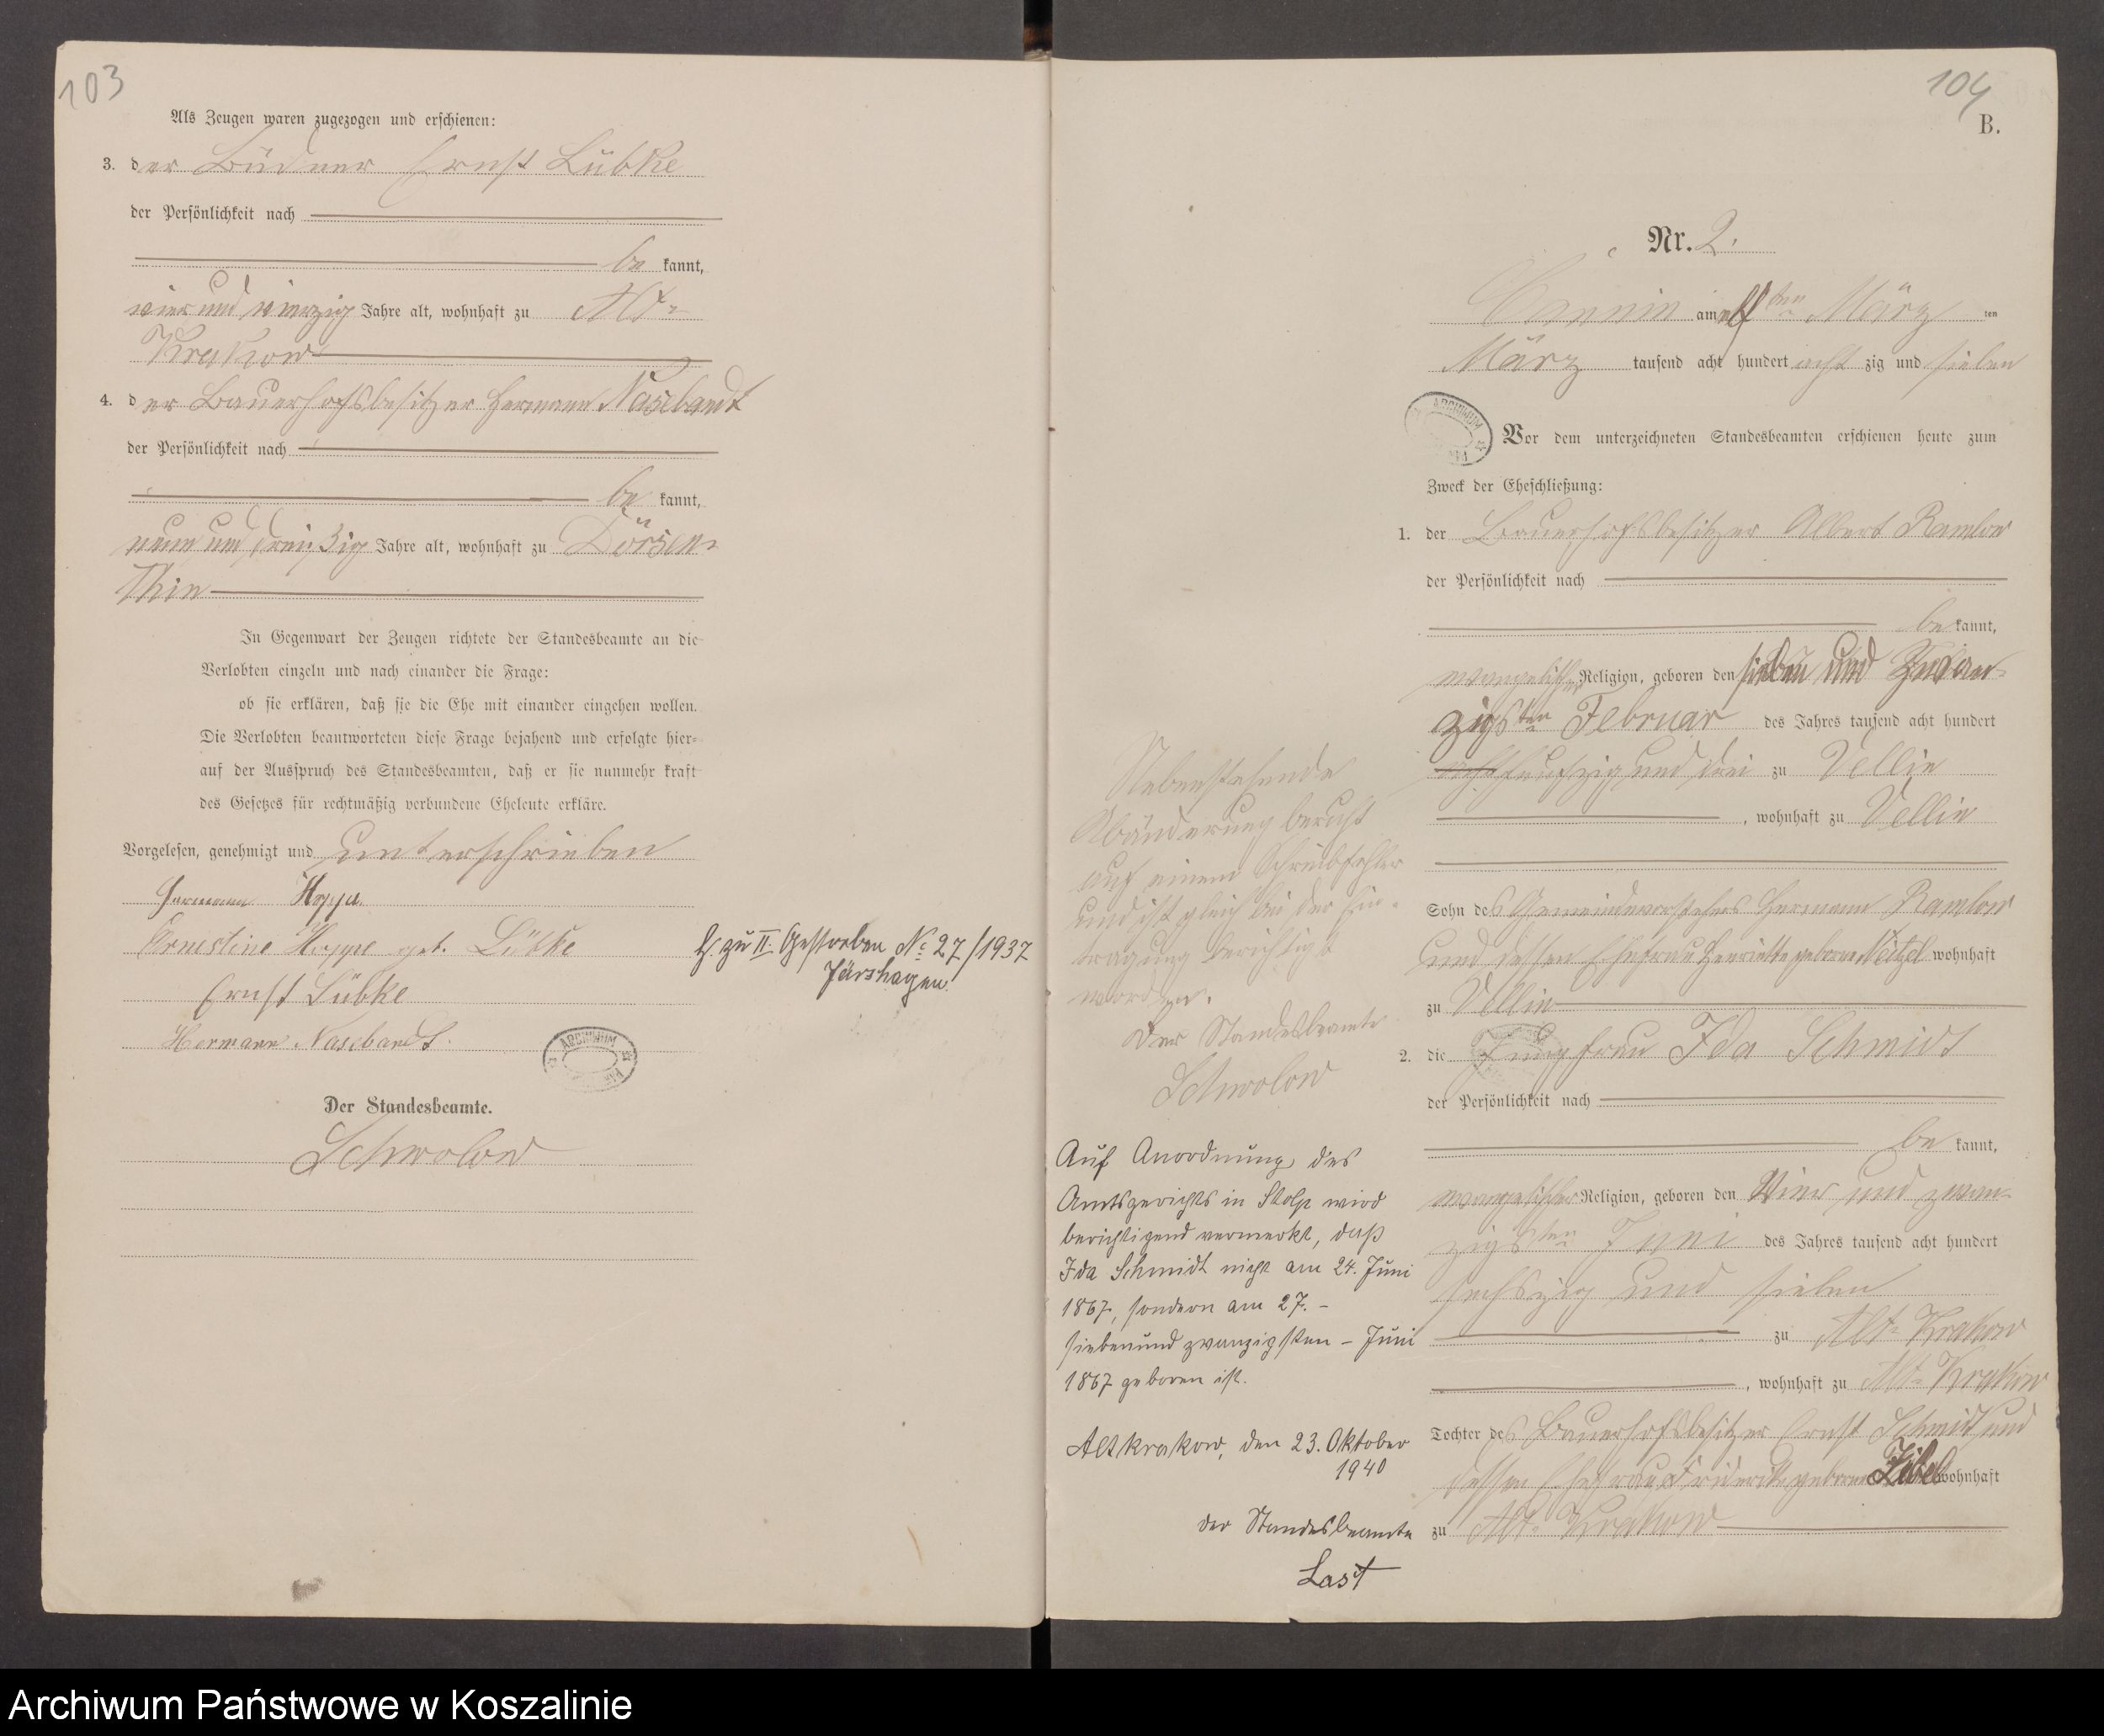 103
Als Zeugen waren zugezogen und erschienen:
3. der Büdner Ernst Lübke
der Persönlichkeit nach
be kannt,
vier und vierzig Jahre alt, wohnhaft zu Alt-
Krakow
4. der Bauerhofsbesitzer Hermann Nasebandt
der Persönlichkeit nach
be kannt,
neun und dreißig Jahre alt, wohnhaft zu Dörsen-
thin
In Gegenwart der Zeugen richtete der Standesbeamte an die
Verlobten einzeln und nach einander die Frage:
ob sie erklären, daß sie die Ehe mit einander eingehen wollen.
Die Verlobten beantworteten diese Frage bejahend und erfolgte hier-
auf der Ausspruch des Standesbeamten, daß er sie nunmehr kraft
des Gesetzes für rechtmäßig verbundene Eheleute erkläre.
Vorgelesen, genehmigt und unterschrieben
Hermann Hoppe
Ernestine Hoppe geb. Lübke
Ernst Lübke
Hermann Nasebandt.
ARCHIWUM
Der Standesbeamte.
Schwolow
zu II. Gestorben No. 27/1937
Järshagen.
104
B.
Nr. 2.
am elf ten März ten
März tausend acht hundert acht zig und sieben
ARCHIWUM
Vor dem unterzeichneten Standesbeamten erschienen heute zum
Zweck der Eheschließung:
1. der Bauerhofsbesitzer Albert Ramlow
der Persönlichkeit nach
be kannt,
evangelischer Religion, geboren den sieben und zwan-
zigsten Februar des Jahres tausend acht hundert
acht fünfzig und drei zu Vellin
, wohnhaft zu Vellin
Sohn des Gemeindevorstehers Hermann Ramlow
und dessen Ehefrau Henriette geborne Neitzel wohnhaft
zu Vellin
2. die Jungfrau Ida Schmidt
der Persönlichkeit nach
be kannt,
evangelischer Religion, geboren den Vier und zwan-
zigsten Juni des Jahres tausend acht hundert
sechszig und sieben
zu Alt-Krakow
, wohnhaft zu Alt-Krakow
Tochter des Bauerhofsbesitzer Ernst Schmidt und
dessen Ehefrau Friderike geborne wohnhaft
zu Alt-Krakow
Nebenstehende
Abänderung beruht
auf einem Schreibfehler
und ist gleich bei der Ein-
tragung berichtigt
worden.
Der Standesbeamte
Schwolow
Auf Anordnung des
Amtsgerichts in Stolp wird
berichtigend vermerkt, daß
Ida Schmidt nicht am 24. Juni
1867, sondern am 27. –
siebenundzwanzigsten – Juni
1867 geboren ist.
Altkrakow, den 23. Oktober
1940
der Standesbeamte
Last
Archiwum Państwowe w Koszalinie